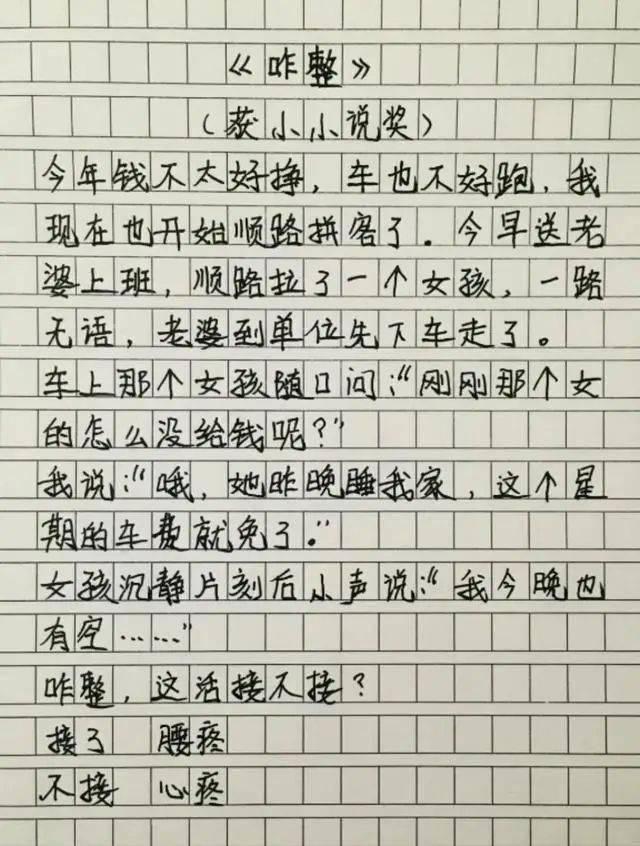 《咋整》
（获小小说奖）
今年钱不太好挣，车也不好跑，我
现在也开始顺路拼客了。今早送老
婆上班，顺路拉了一个女孩，一路
无语，老婆到单位先下车走了。
车上那个女孩随口问：“刚刚那个女
的怎么没给钱呢？”
我说：“哦，她昨晚睡我家，这个星
期的车费就免了。”
女孩沉静片刻后小声说：“我今晚也
有空……”
咋整，这活接不接？
接了 腰疼
不接 心疼